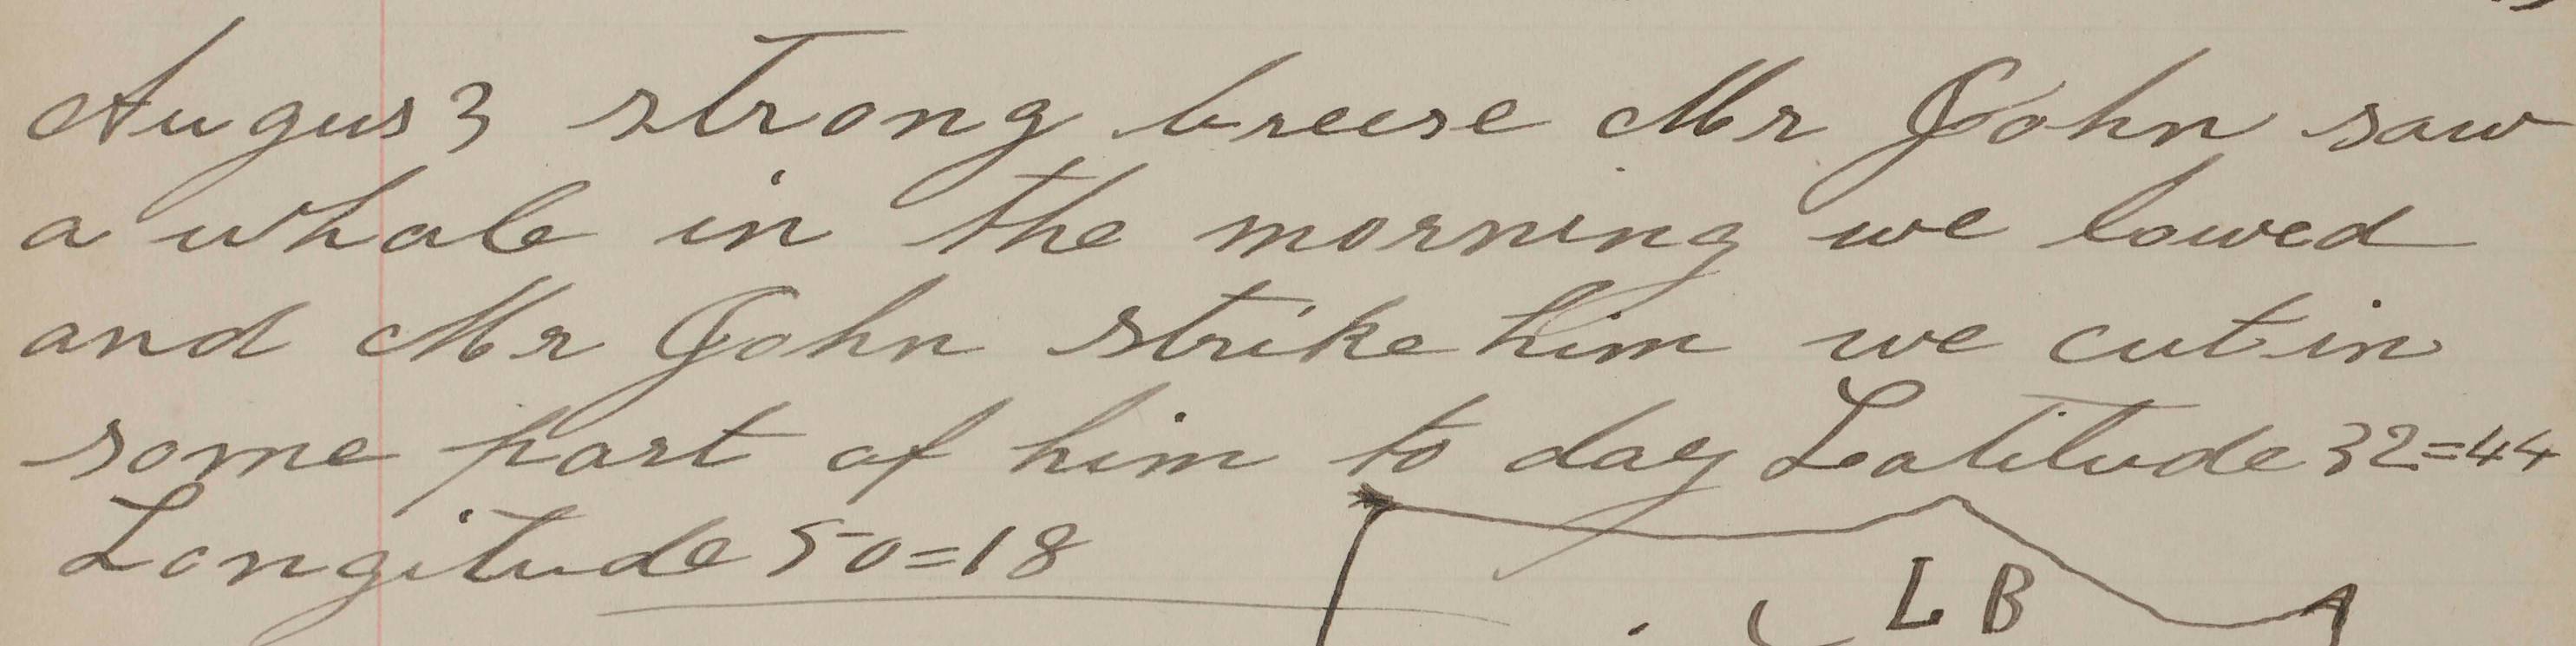 Augus 3 strong breese Mr John saw
a whale in the morning we lowed
and Mr John strike him we cut in
some part of him to day Latitude 32=44
Longitude 50=18
L B